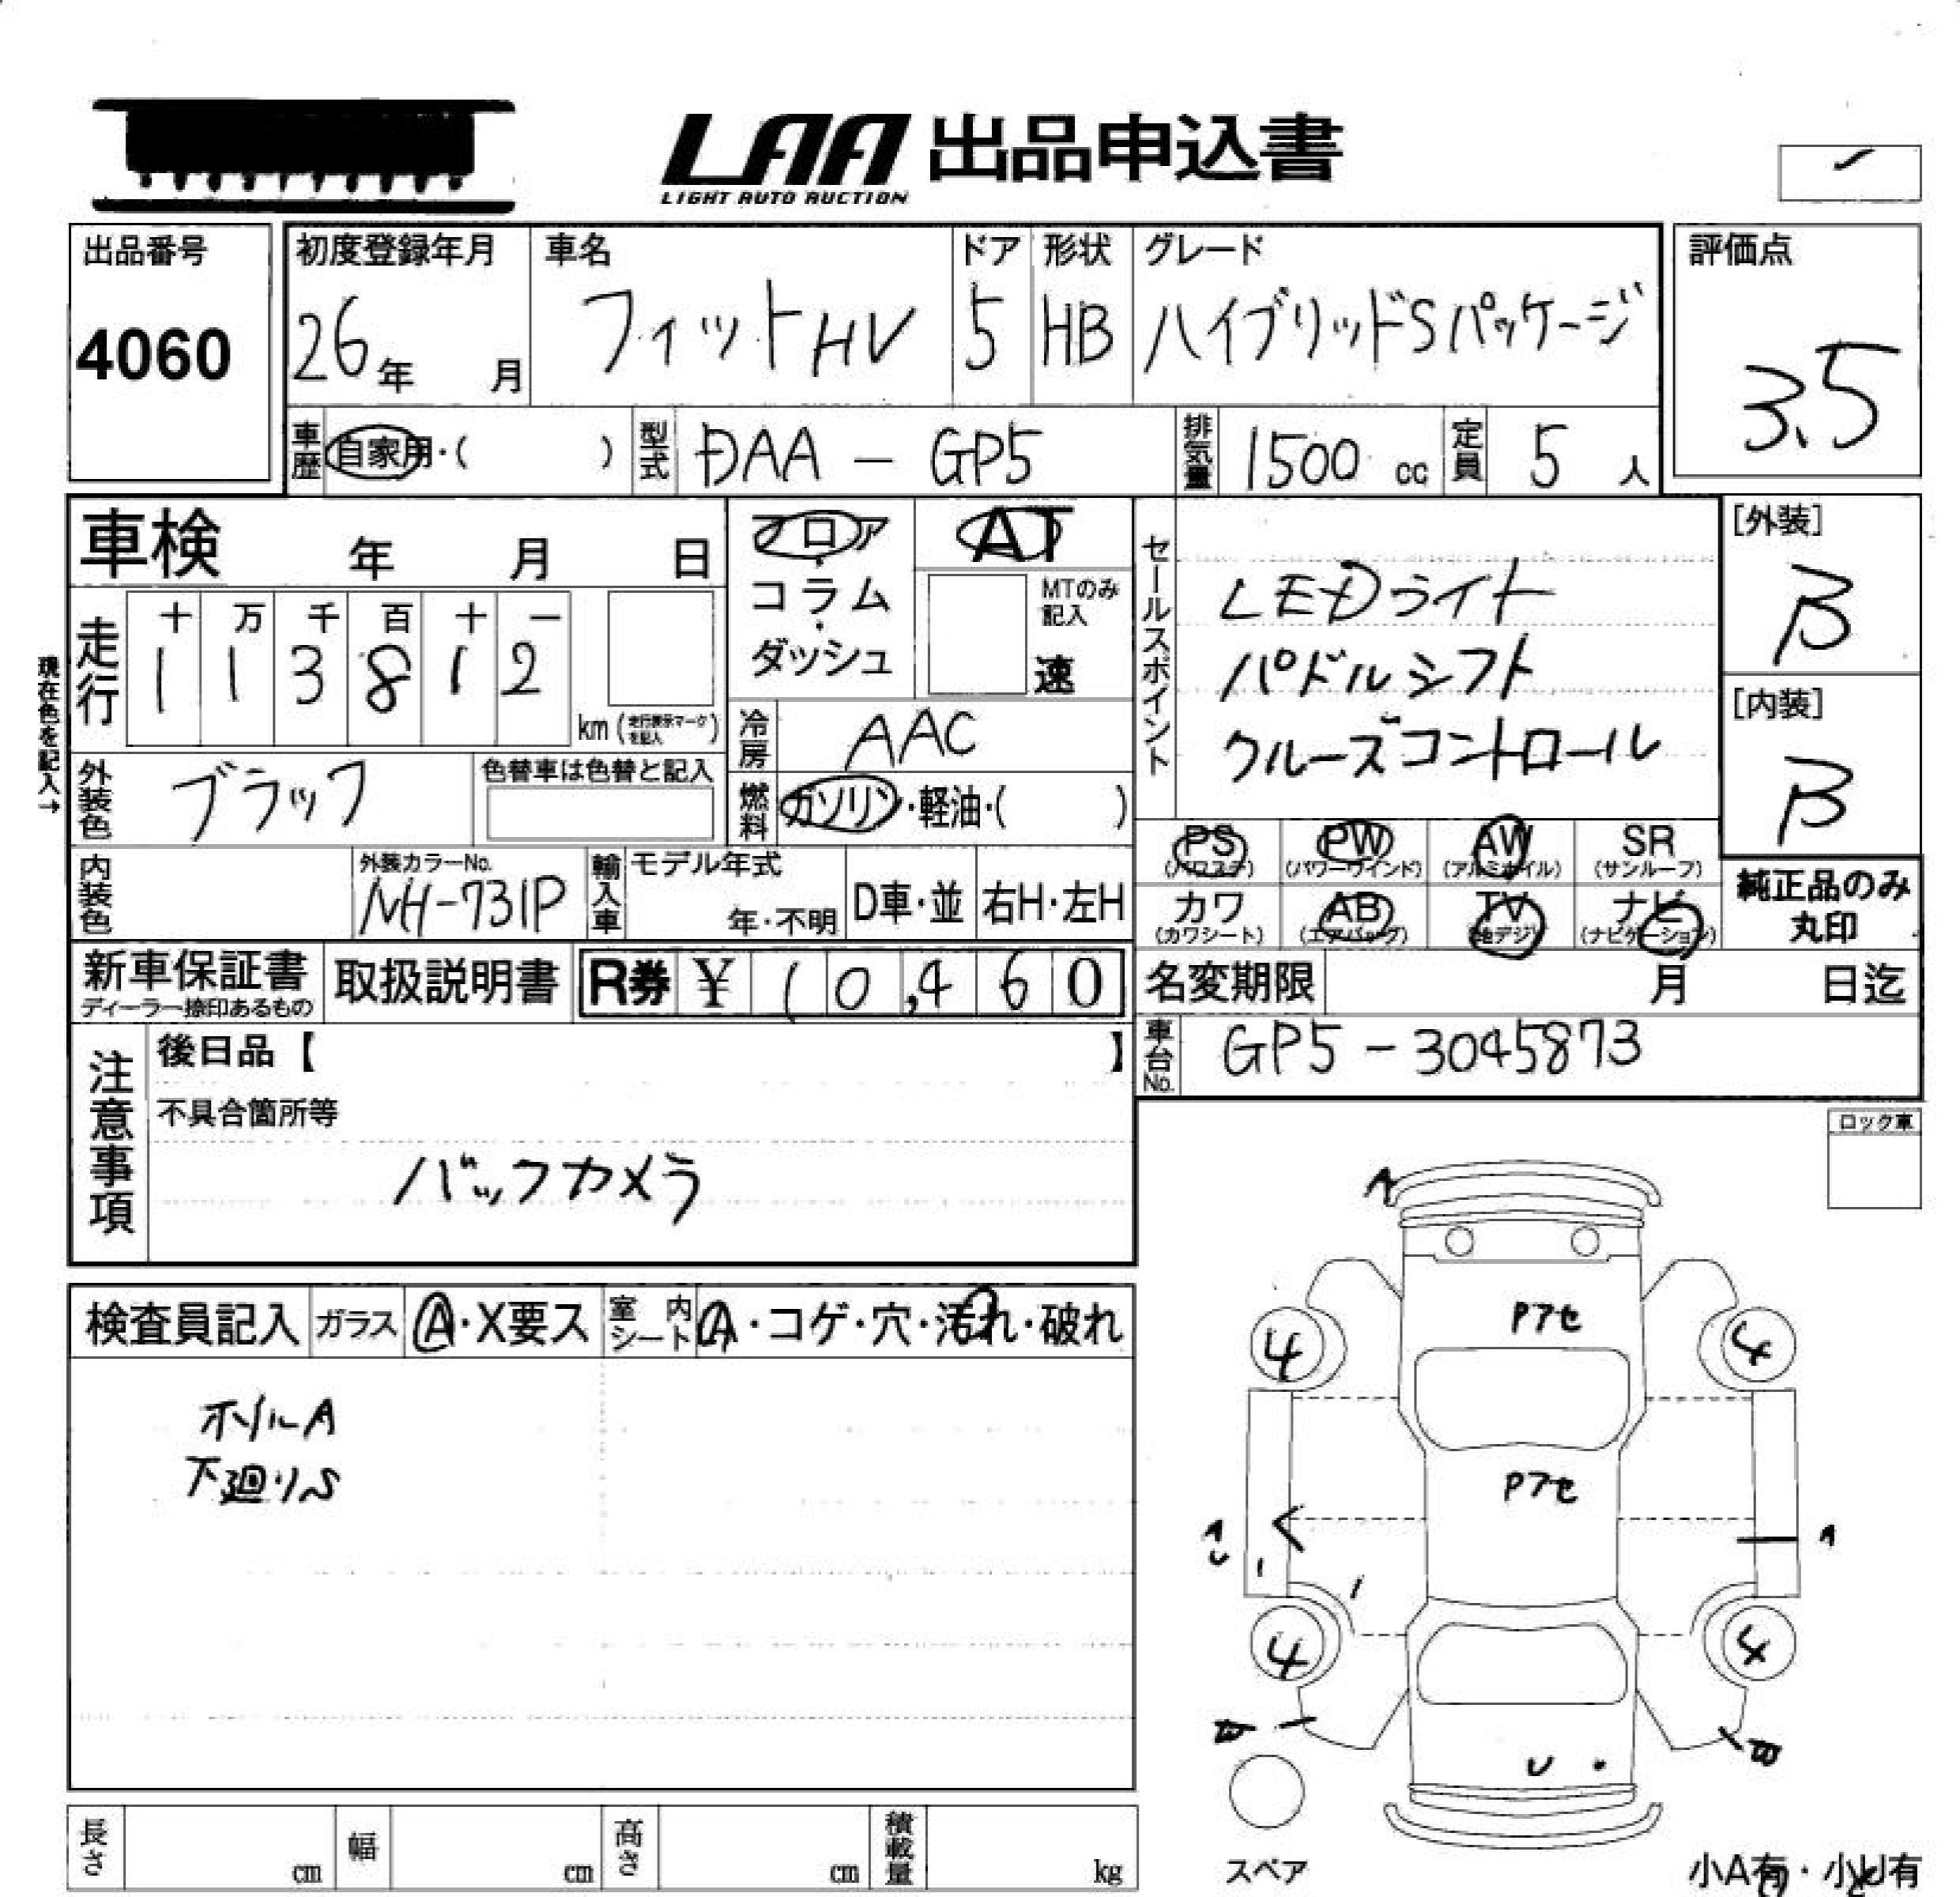 LAA 出品申込書
LIGHT AUTO AUCTION
出品番号
4060
初度登録年月
26年 月
車名
フィットHV
ドア
5
形状
HB
グレード
ハイブリッドSパッケージ
評価点
3.5
車歴 自家用・( )
型式 DAA - GP5
排気量 1500 cc
定員 5 人
車検 年 月 日
フロア・コラム・ダッシュ
AT
MTのみ記入
速
現在色を記入→
走行
十 万 千 百 十 一
1 1 3 8 1 2
km (走行表示マークを記入)
冷房 AAC
燃料 ガソリン・軽油・( )
外装色 ブラック
色替車は色替と記入
内装色
外装カラーNo.
NH-731P
輸入車
モデル年式
年・不明
D車・並
右H・左H
セールスポイント
LEDライト
パドルシフト
クルーズコントロール
[外装]
B
[内装]
B
PS (パワステ)
PW (パワーウインド)
AW (アルミホイル)
SR (サンルーフ)
カワ (カワシート)
AB (エアバッグ)
TV (地デジ)
ナビ (ナビゲーション)
純正品のみ丸印
新車保証書
ディーラー捺印あるもの
取扱説明書
R券 ¥ 10,460
名変期限 月 日迄
車台No. GP5-3045873
注意事項
後日品【 】
不具合箇所等
バックカメラ
ロック車
検査員記入
ガラス A・X要ス
室内シート A・コゲ・穴・汚れ・破れ
ホイルA
下廻りS
A
Pアセ
4 4
Pアセ
A
U
A
4 4
U
スペア
小A有・小U有
長さ cm
幅 cm
高さ cm
積載量 kg